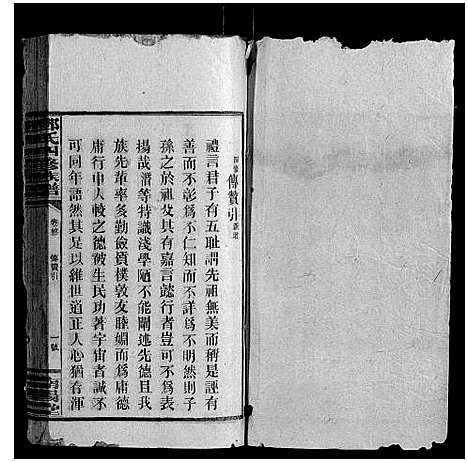 四修傳贊引
禮言君子有五耻謂先祖無美而稱是誣有
善而不彰爲不仁知而不詳爲不明然則子
孫之於祖攷具有嘉言懿行者豈可不爲表
揚哉潛等特識淺學陋不能闡述先德且我
族先輩率多勤儉質樸敦友睦婣而爲庸德
庸行中人較之德被生民功著宇宙者誠不
可同年語然其足以維世道正人心猶春渾
氏四修族譜
傳贊引
一號